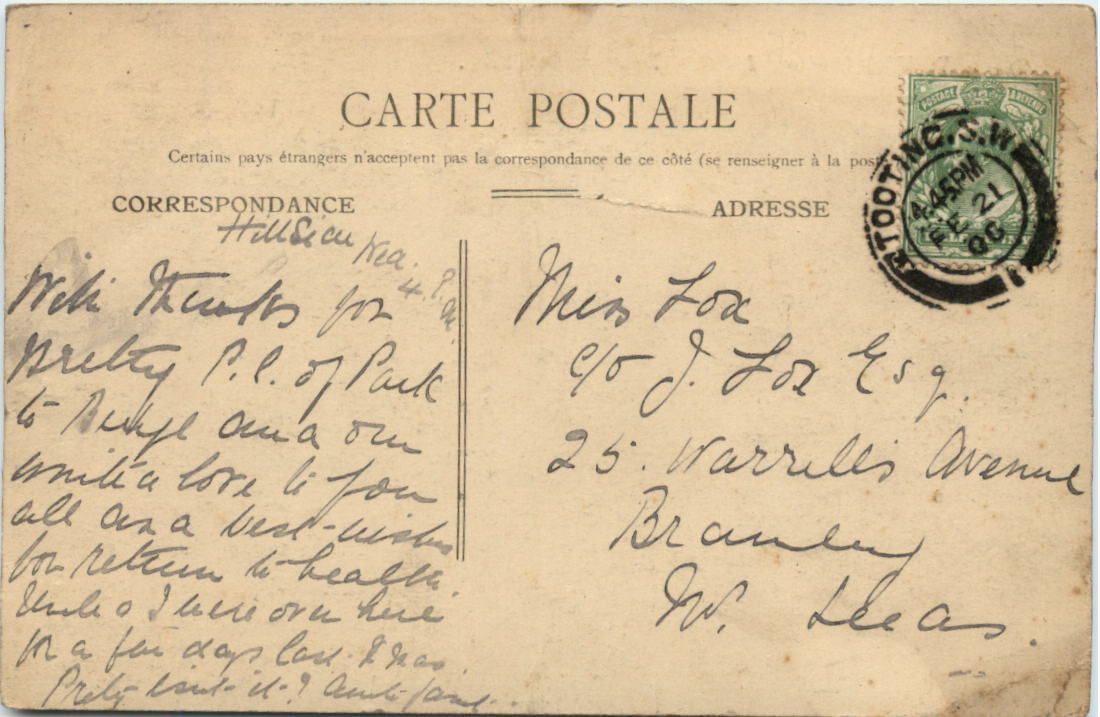 CARTE POSTALE
Certains pays étrangers n'acceptent pas la correspondance de ce côté (se renseigner à la post
CORRESPONDANCE
ADRESSE
POSTAGE REVENUE
TOOTING. S.W
4.45PM
FE 21
Wed.
4 P.M.
With Thanks for
pretty P.C. of Park
to and our
united love to you
all and best wishes
for return to health.
Uncle & I were over here
for a few days last
Pretty isn't it? Auntie
Miss Fox
c/o J. Fox Esq.
25. Warrells Avenue
Bramley
Nr. Leeds.